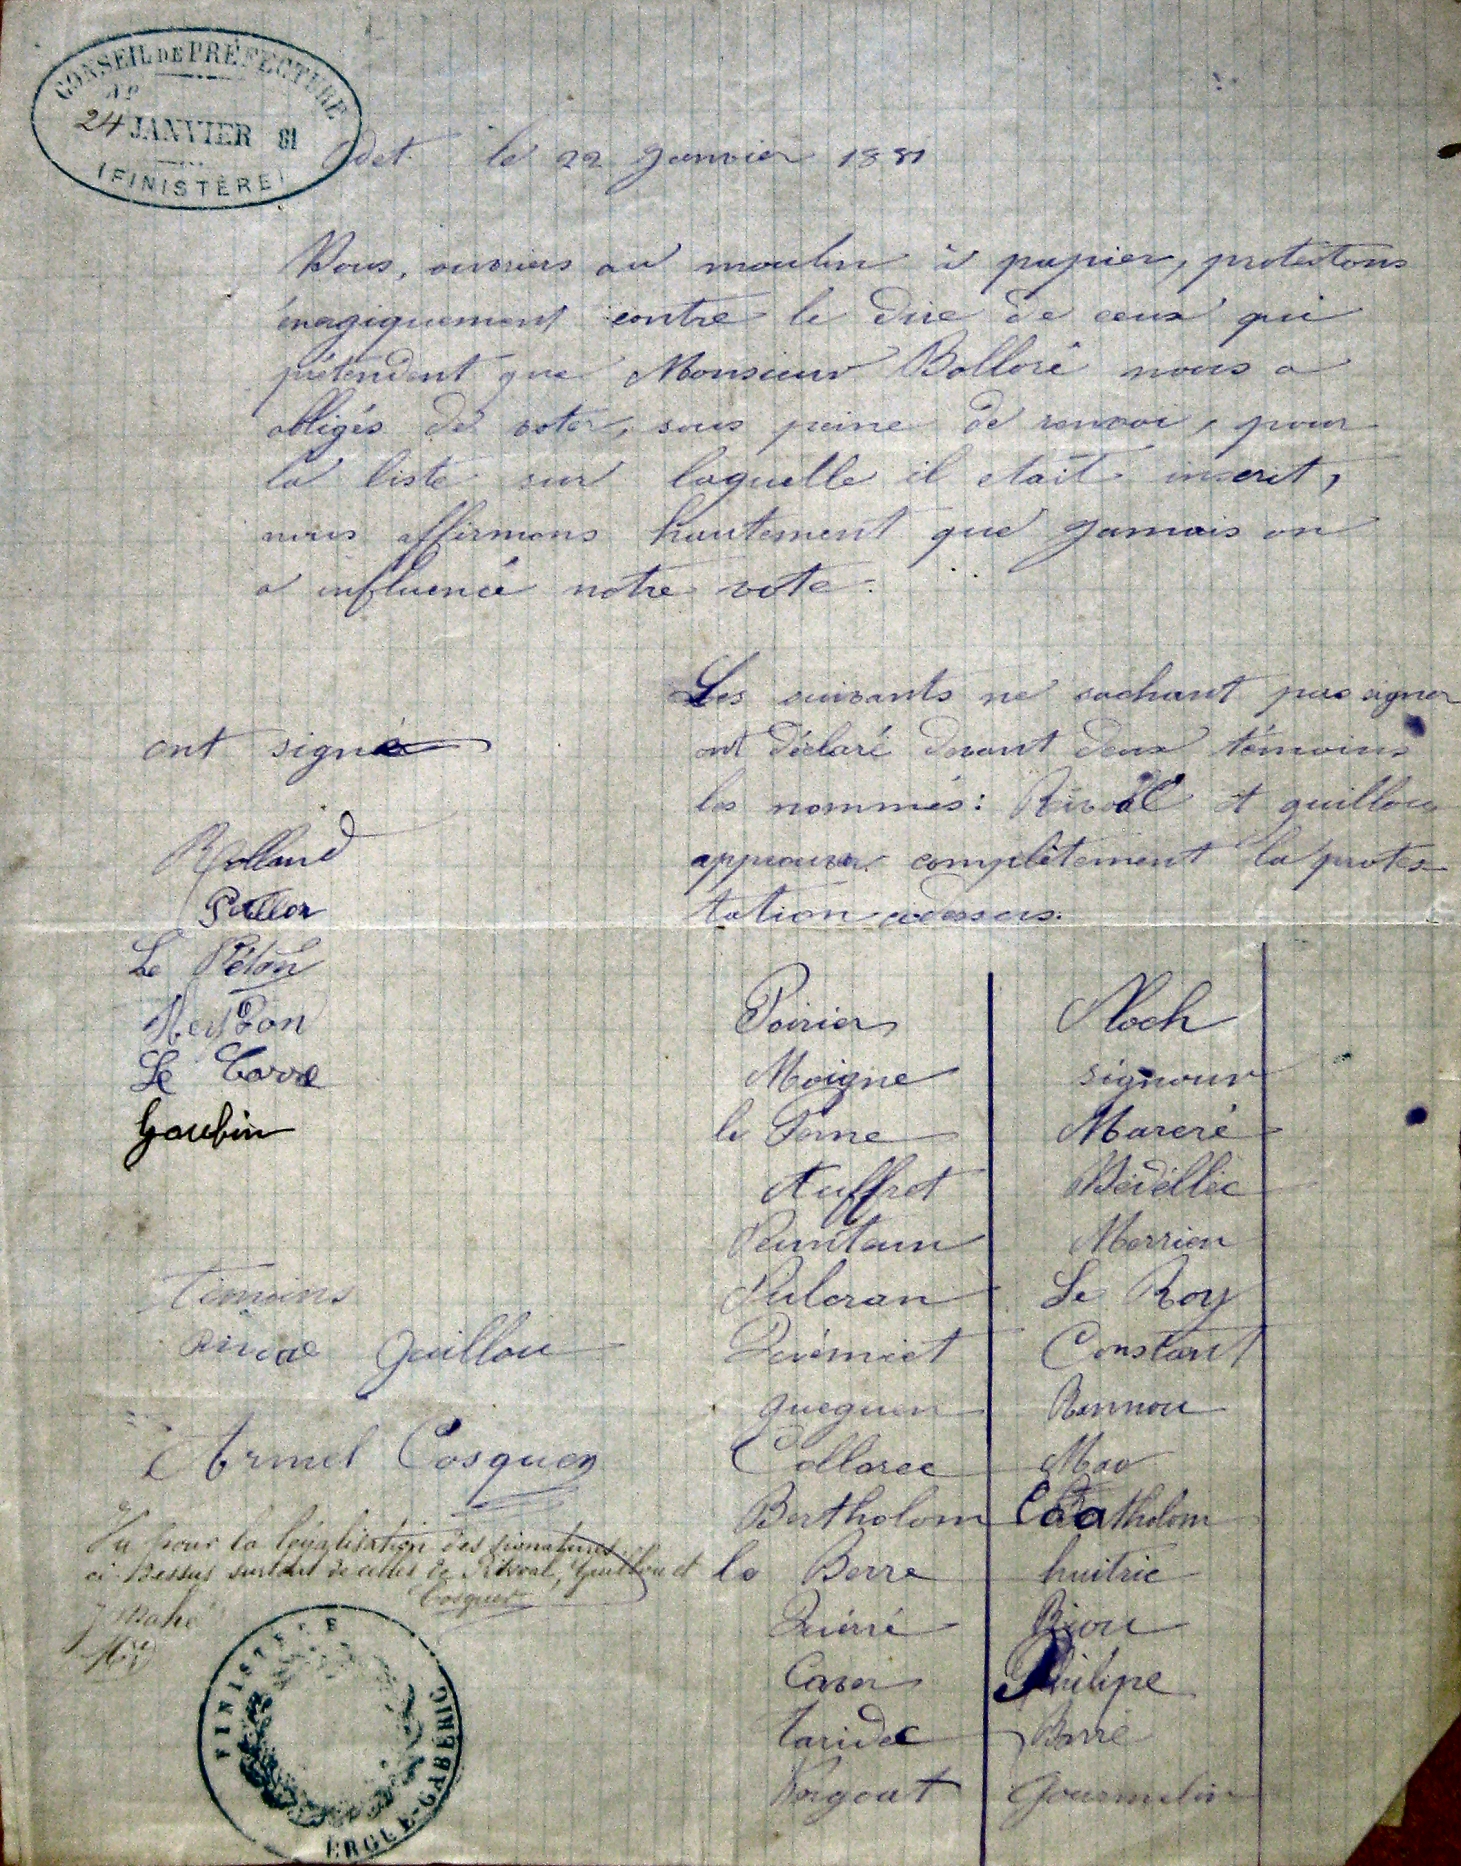 CONSEIL DE PRÉFECTURE
No
24 JANVIER 81
(FINISTÈRE)
Odet le 22 Janvier 1881
Nous, ouvriers au moulin à papier, protestons
énergiquement contre le dire de ceux qui
prétendent que Monsieur Bolloré nous a
obligés de voter, sous peine de renvoi, pour
la liste sur laquelle il etait inscrit,
nous affirmons hautement que jamais on
a influencé notre vote.
ont signé
Rolland
Le Pétou
Le Corre
Gaubin
Témoins
Rivoal Guillou
Armel Cosquer
Vu pour la légalisation des signatures
ci-dessus surtout de celles de Rivoal, Guillou et
Cosquer
J Mahé
Mre
FINISTERE
ERGUE-GABERIC
Les suivants ne sachant pas signer
ont déclaré devant deux témoins
les nommés: Rivoal et guillou
approuver complètement la protes-
tation ci-dessus.
Poirier
Moigne
le
Auffret
Quéméet
gueguen
Collorec
Bertholom
le Berre
Quérré
Caver
Taridec
Noch
signour
Marcré
Bédéllec
Merrien
Le Roy
Constant
Rannou
Mao
Batholom
huitric
Riou
Philipe
Barré
Gourmelin